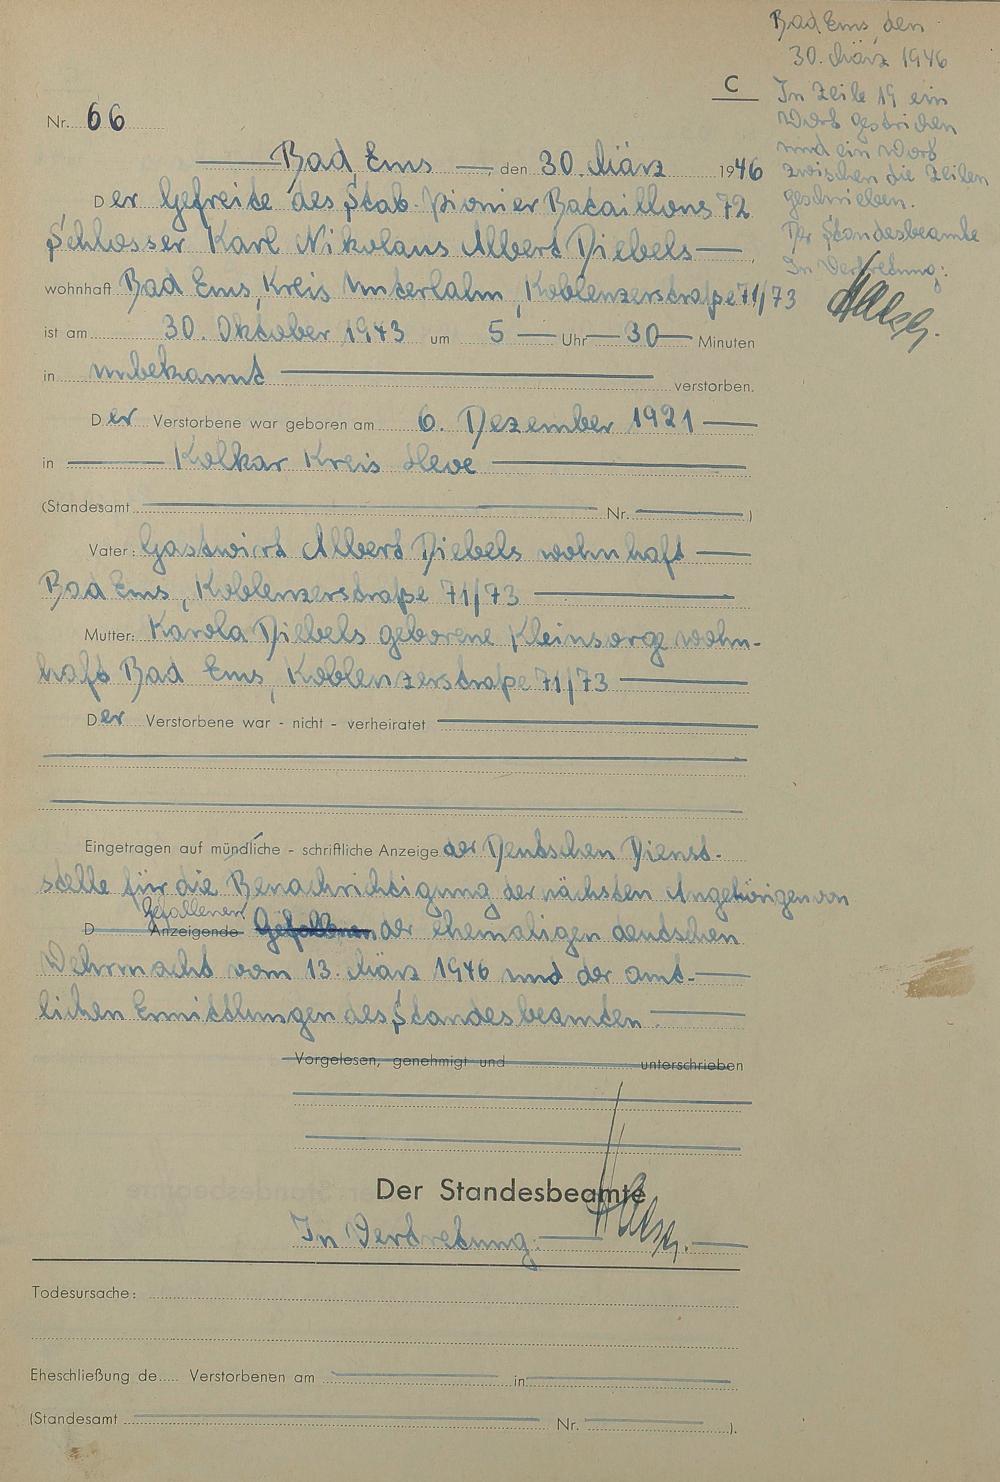 C
Nr. 66
Bad Ems, den 30. März 1946
Der Gefreite des Stab. Pionier Bataillons 72
Schlosser Karl Nikolaus Albert Diebels
wohnhaft Bad Ems, Kreis Unterlahn, Koblenzerstraße 71/73
ist am 30. Oktober 1943 um 5 Uhr 30 Minuten
in unbekannt verstorben.
Der Verstorbene war geboren am 6. Dezember 1921
in Kalkar Kreis Kleve
(Standesamt Nr. )
Vater: Gastwirt Albert Diebels wohnhaft
Bad Ems, Koblenzerstraße 71/73
Mutter: Karola Diebels geborene Kleinsorge wohn-
haft Bad Ems, Koblenzerstraße 71/73
Der Verstorbene war - nicht - verheiratet
Eingetragen auf mündliche - schriftliche Anzeige der Deutschen Dienst-
stelle für die Benachrichtigung der nächsten Angehörigen von
Gefallenen
D Anzeigende Gefallenen der ehemaligen deutschen
Wehrmacht vom 13. März 1946 und der amt-
lichen Ermittlungen des Standesbeamten.
Vorgelesen, genehmigt und unterschrieben
Der Standesbeamte
In Vertretung:
Todesursache:
Eheschließung de..... Verstorbenen am in
(Standesamt Nr. ).
Bad Ems, den
30. März 1946
In Zeile 19 ein
Wort gestrichen
und ein Wort
zwischen die Zeilen
geschrieben.
Der Standesbeamte
In Vertretung: